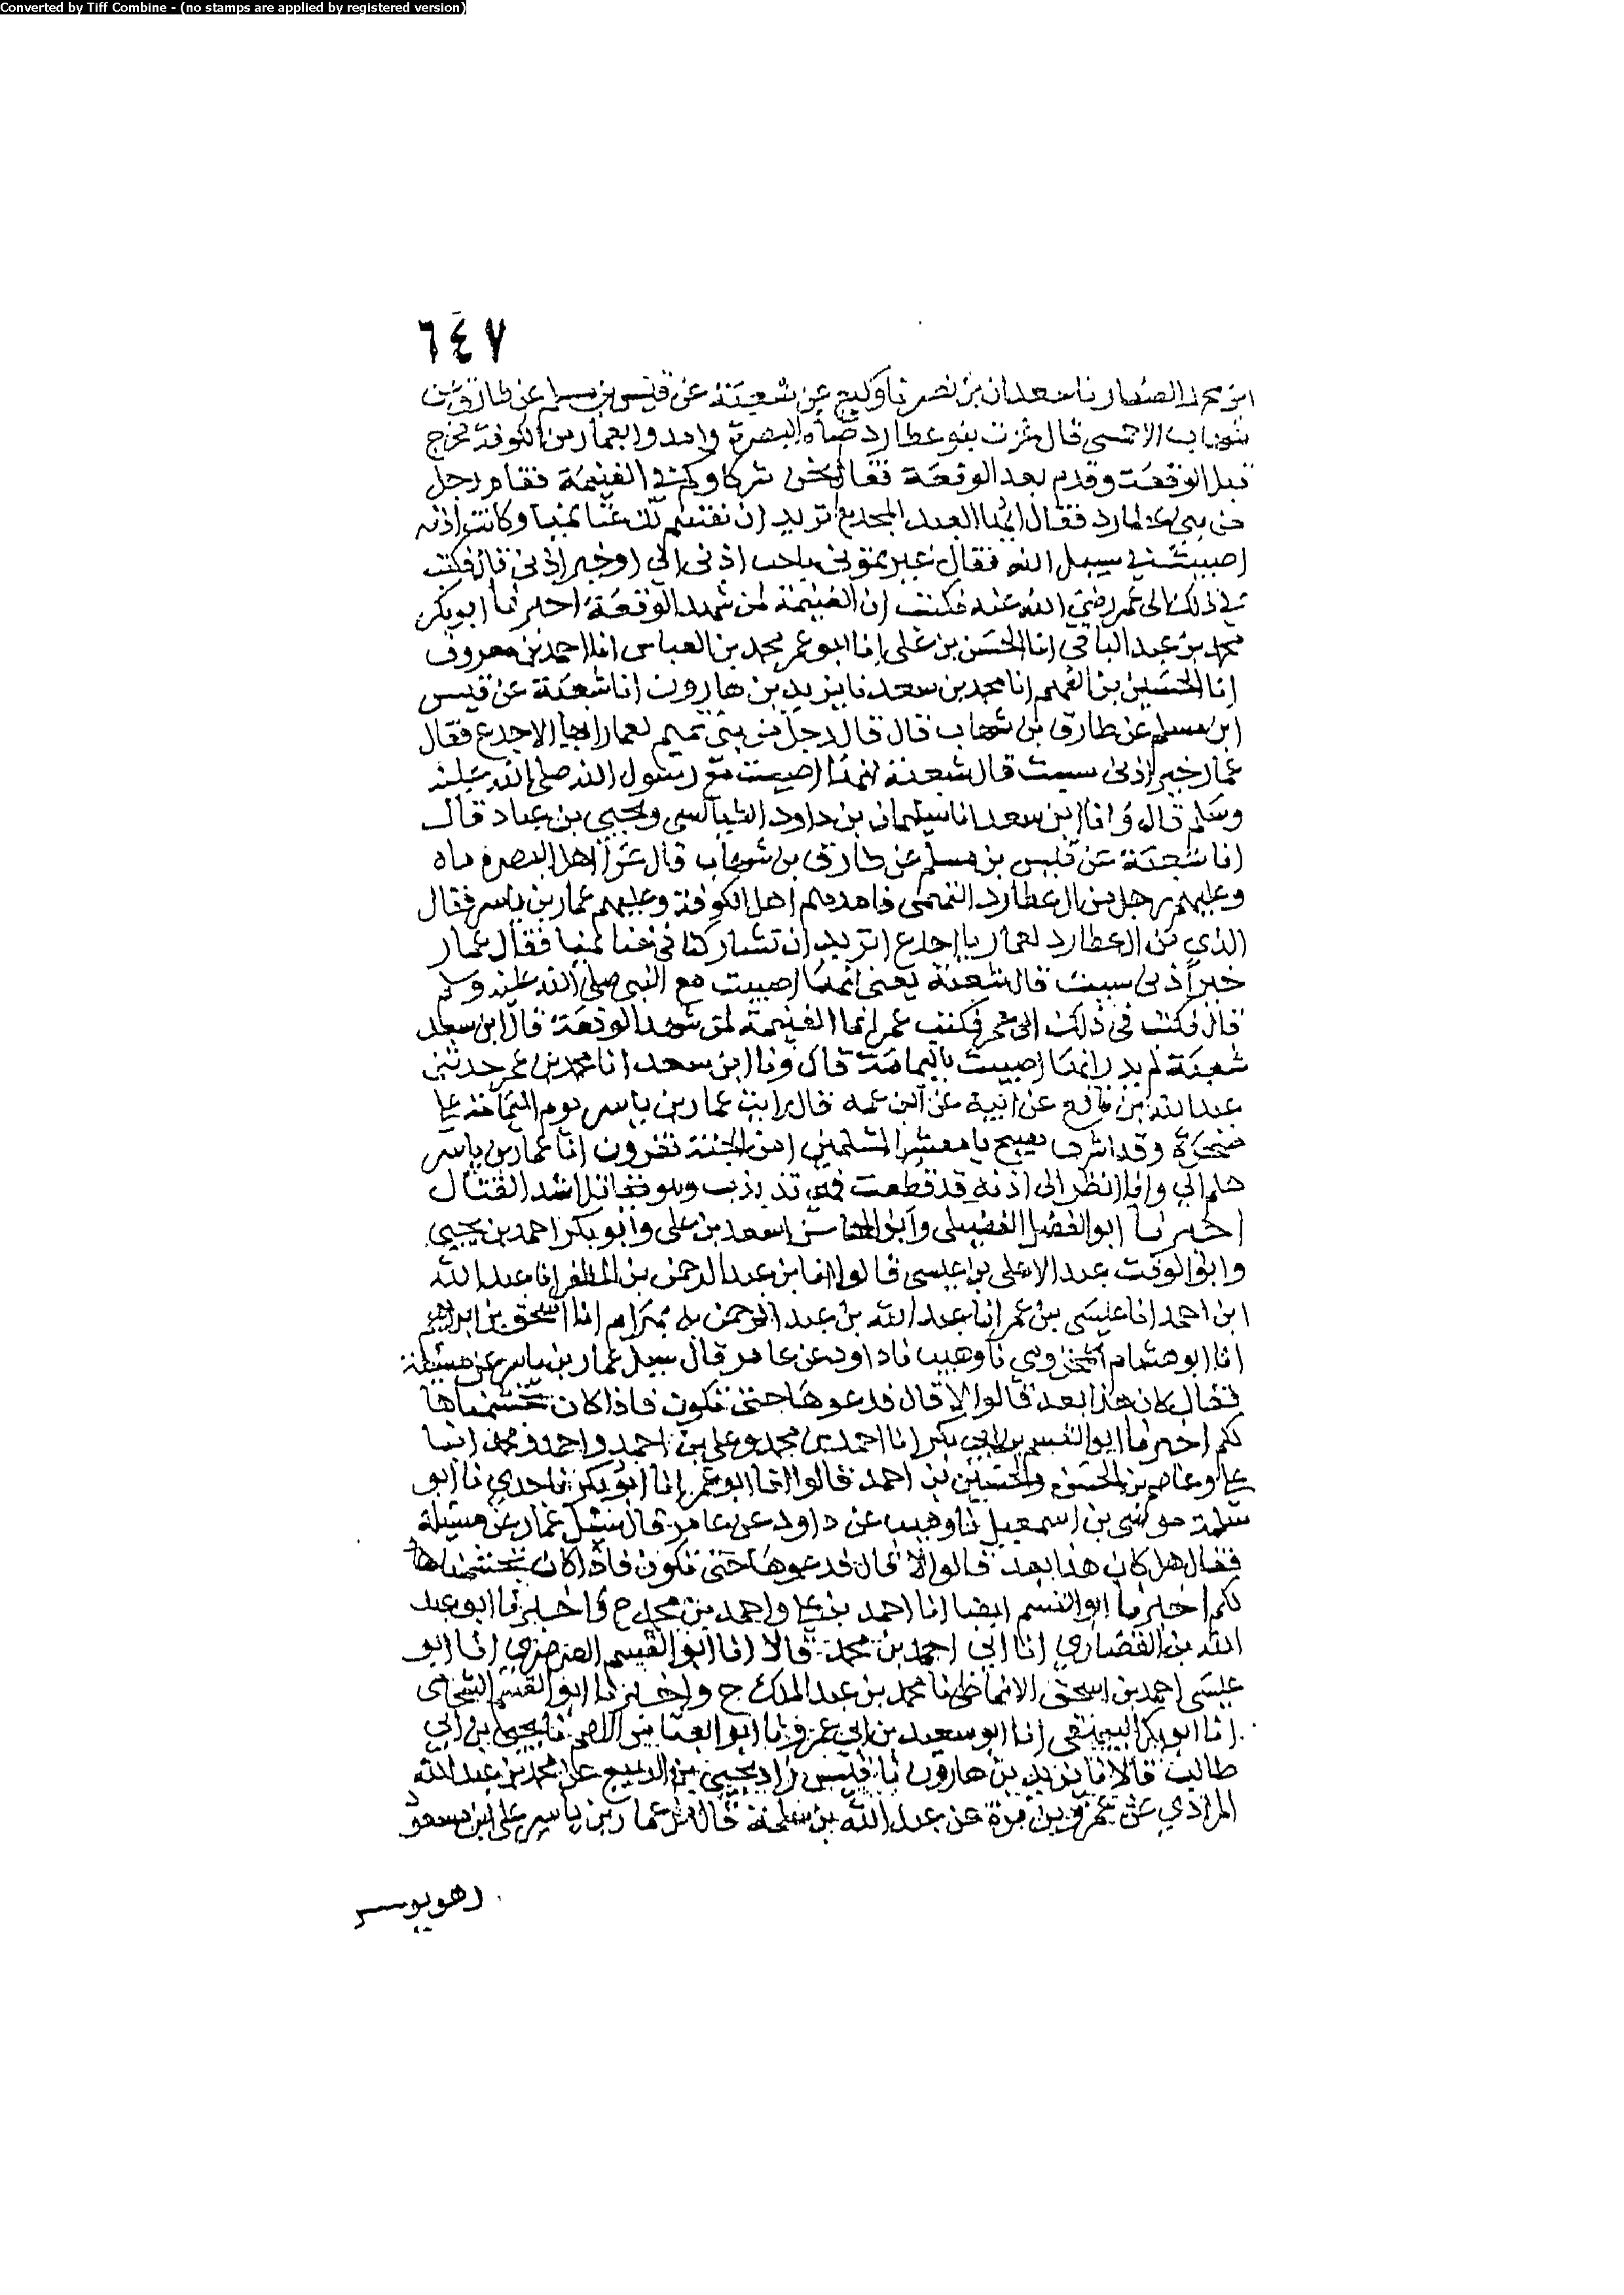 Converted by Tiff Combine - (no stamps are applied by registered version)
٦٤٧
ابن محمد الصفار نا سعدان بن نصر نا وكيع عن شعبة عن قيس بن مسلم عن طارق بن
شهاب الاحمسي قال غزت بنو عطارد ماه البصرة وامدوا بعمار من الكوفة فخرج
قبل الوقعة وقدم بعد الوقعة فقال نحن شركاوكم في الغنيمة فقام رجل
من بني عطارد فقال ايها العبد المجدع اتريد ان نقسم لك غنايمنا وكانت اذنه
اصيبت في سبيل الله فقال عيرتموني باحب اذني الي او خير اذني قال فكتب
في ذلك الى عمر رضي الله عنه فكتب ان الغنيمة لمن شهد الوقعة اخبرنا ابو بكر
محمد بن عبد الباقي انا الحسن بن علي انا ابو عمر محمد بن العباس انا احمد بن معروف
انا الحسين بن الفهم انا محمد بن سعد نا يزيد بن هارون انا شعبة عن قيس
ابن مسلم عن طارق بن شهاب قال قال رجل من بني تميم لعمار ايها الاجدع فقال
عمار خير اذني سببت قال شعبة انها اصيبت مع رسول الله صلى الله عليه
وسلم قال وانا ابن سعد انا سليمان بن داود الطيالسي ويحيى بن عباد قال
انا شعبة عن قيس بن مسلم عن طارق بن شهاب قال غزا اهل البصرة ماه
وعليهم رجل من ال عطارد التميمي فامدهم اهل الكوفة وعليهم عمار بن ياسر فقال
الذي من ال عطارد لعمار يا اجدع اتريد ان تشاركنا في غنايمنا فقال عمار
خير اذني سببت قال شعبة يعني انها اصيبت مع النبي صلى الله عليه وسلم
قال فكتب في ذلك الى عمر فكتب عمر انما الغنيمة لمن شهد الوقعة قال ابن سعد
شعبة لم يدر انها اصيبت باليمامة قال ونا ابن سعد انا محمد بن عمر حدثني
عبد الله بن نافع عن ابيه عن ابن عمر قال رايت عمار بن ياسر يوم اليمامة على
صخرة وقد اشرف يصيح يا معشر المسلمين امن الجنة تفرون انا عمار بن ياسر
هلم الي وانا انظر الى اذنه قد قطعت فهي تذبذب وهو يقاتل اشد القتال
اخبرنا ابو الفضل الفضيلي وابو المحاسن اسعد بن علي وابو بكر احمد بن يحيى
وابو الوقت عبد الاعلى بن عيسى قالوا انا بن عبد الرحمن بن المظفر انا عبد الله
ابن احمد انا عيسى بن عمر انا عبد الله بن عبد الرحمن بن بهرام انا اسحق بن ابراهيم
انا ابو هشام المخزومي نا وهيب نا داود عن عامر قال سيل عمار بن ياسر عن مسيلة
فقال كان هذا بعد قالوا لا قال فدعوها حتى تكون فاذا كان تجشمناها
لكم اخبرنا ابو القسم بن ابي بكر انا احمد بن محمد وعلي بن احمد واحمد ومحمد ابنا
علي وعاصم بن الحسن والحسين بن احمد قالوا انا ابو عمر انا ابو بكر نا جدي نا ابو
سلمة موسى بن اسمعيل نا وهيب عن داود عن عامر قال سئل عمار عن مسيلة
فقال هل كان هذا بعد قالوا لا قال فدعوها حتى تكون فاذا كان تجشمناها
لكم اخبرنا ابو القسم ايضا انا احمد بن علي واحمد بن محمد ح واخبرنا ابو عبد
الله بن القصاري انا ابي احمد بن محمد قالا انا ابو القسم الصرصري انا ابو
عيسى احمد بن اسحق الانماطي نا محمد بن عبد الملك ح واخبرنا ابو القسم الشحامي
انا ابو بكر البيهقي انا ابو سعيد بن ابي عمرو نا ابو العباس الاصم نا يحيى بن ابي
طالب قالا نا يزيد بن هارون نا قيس زاد يحيى بن الربيع عن محمد بن عبد الله
المرادي عن عمرو بن مرة عن عبد الله بن سلمة قال مر عمار بن ياسر على ابن مسعود
وهو يوسس